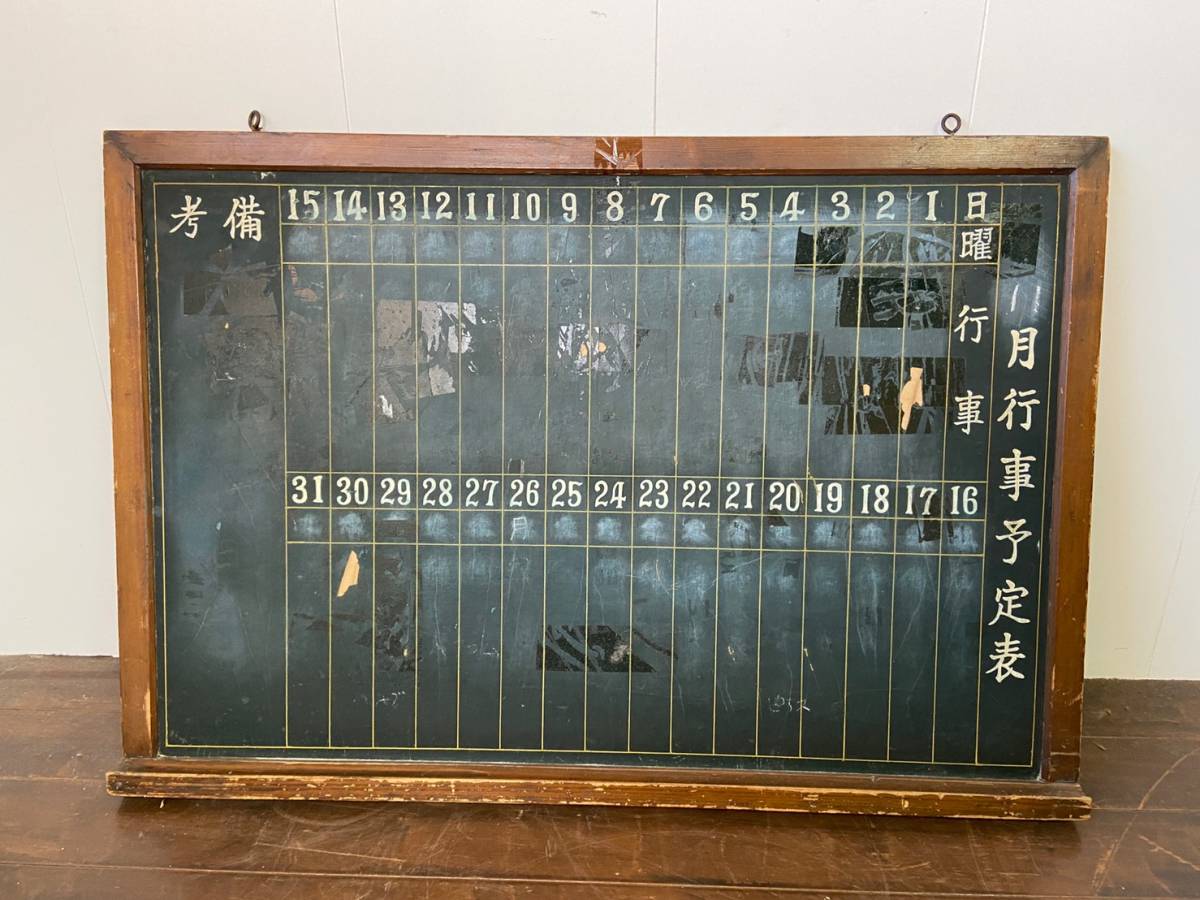 月行事予定表
日 1 2 3 4 5 6 7 8 9 10 11 12 13 14 15
曜
行事
16 17 18 19 20 21 22 23 24 25 26 27 28 29 30 31
備考